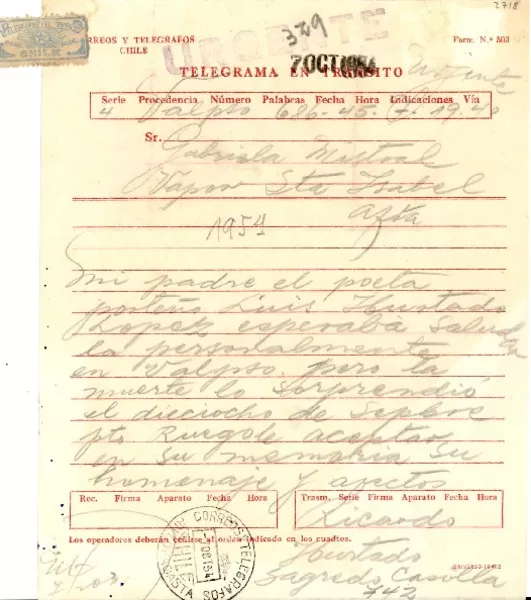 2718
CORREOS Y TELEGRAFOS
CHILE
URGENTE
329
7 OCT 1954
Form. N.º 503
TELEGRAMA EN TRANSITO
Urgente
Serie Procedencia Número Palabras Fecha Hora Indicaciones Vía
4 Valpso 686-45-7-19.40
Sr. Gabriela Mistral
Vapor Sta Isabel
Afta
1954
Mi padre el poeta
porteño Luis Hurtado
Lopez esperaba Saludar
la personalmente
en Valpso. pero la
muerte lo sorprendió
el dieciocho de Sepbre
pto Ruegole aceptar
en su memoria su
homenaje y afectos
Rec. Firma Aparato Fecha Hora
Trasm. Serie Firma Aparato Fecha Hora
Ricardo
Los operadores deberán ceñirse al orden indicado en los cuadros.
Hurtado
Sagredo Casilla
742
CORREOS Y TELEGRAFOS
CHILE